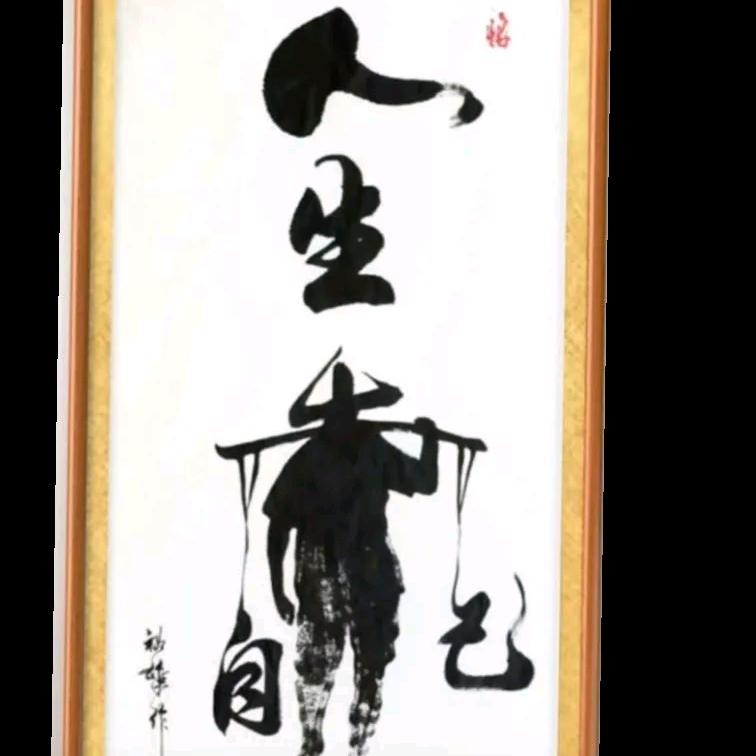 人
生
靠
自己